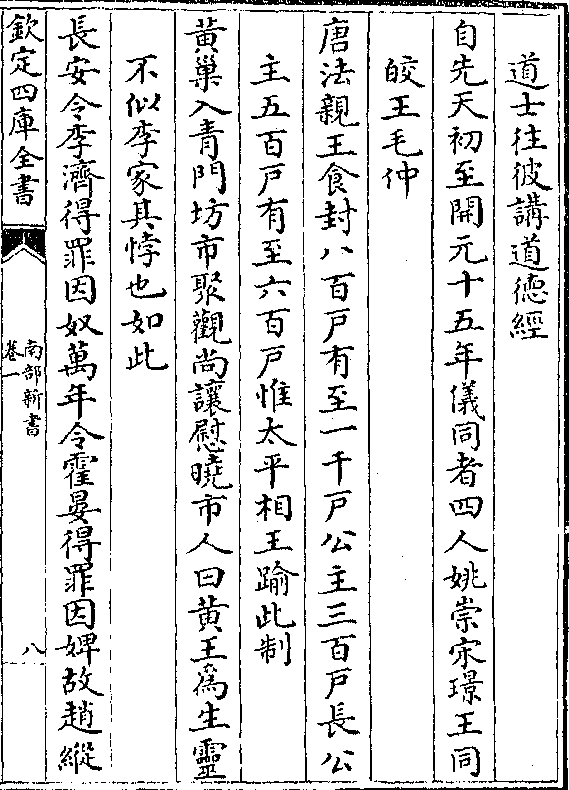 道士往彼講道德經
自先天初至開元十五年儀同者四人姚崇宋璟王同
皎王毛仲
唐法親王食封八百戸有至一千戸公主三百戸長公
主五百戸有至六百戸惟太平相王踰此制
黄巢入青門坊市聚觀尚讓慰曉市人曰黄王為生靈
不似李家其悖也如此
長安令李濟得罪因奴萬年令霍晏得罪因婢故趙縱
欽定四庫全書
南部新書
卷一
八